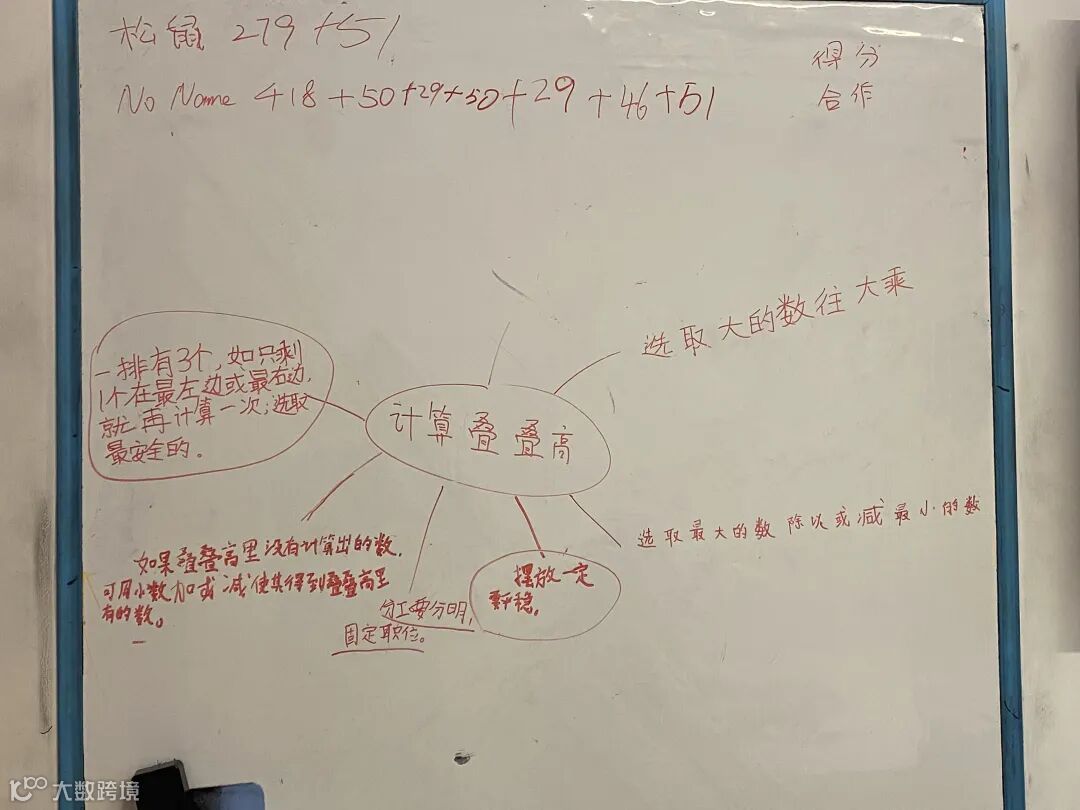 松鼠 279+51
得分
No Name 418+50+29+50+29+46+51
合作
选取大的数往大乘
一排有3个，如只剩
1个在最左边或最右边，
就再计算一次；选取
最安全的。
计算叠叠高
选取最大的数除以或减最小的数
如果叠叠高里没有计算出的数，
可用小数加或减使其得到叠叠高里
有的数。
摆放一定
要平稳。
分工要分明，
固定职位。
大数跨境